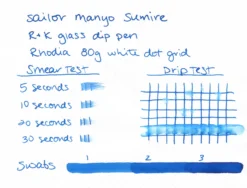 sailor manyo sumire
R+K glass dip pen
Rhodia 80g white dot grid
Smear TEST
Drip TEST
5 seconds
10 seconds
20 seconds
30 seconds
1 2 3
Swabs